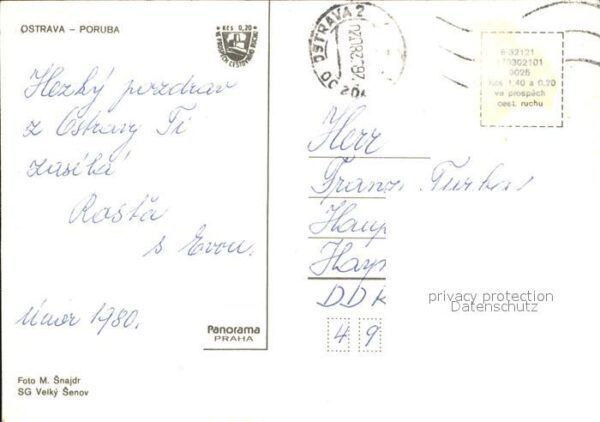 OSTRAVA – PORUBA
Kčs 0,20
VE PROSPĚCH CESTOVNÍHO RUCHU
OSTRAVA 2
6-32121
0025
Kčs 1,40 a 0,20
ve prospěch
cest. ruchu
Hezký pozdrav
z Ostravy Ti
zasílá
Rosťa
s Evou.
Únor 1980.
Herr
Franz
Haup
DDR
4 9
privacy protection
Datenschutz
Panorama
PRAHA
Foto M. Šnajdr
SG Velký Šenov